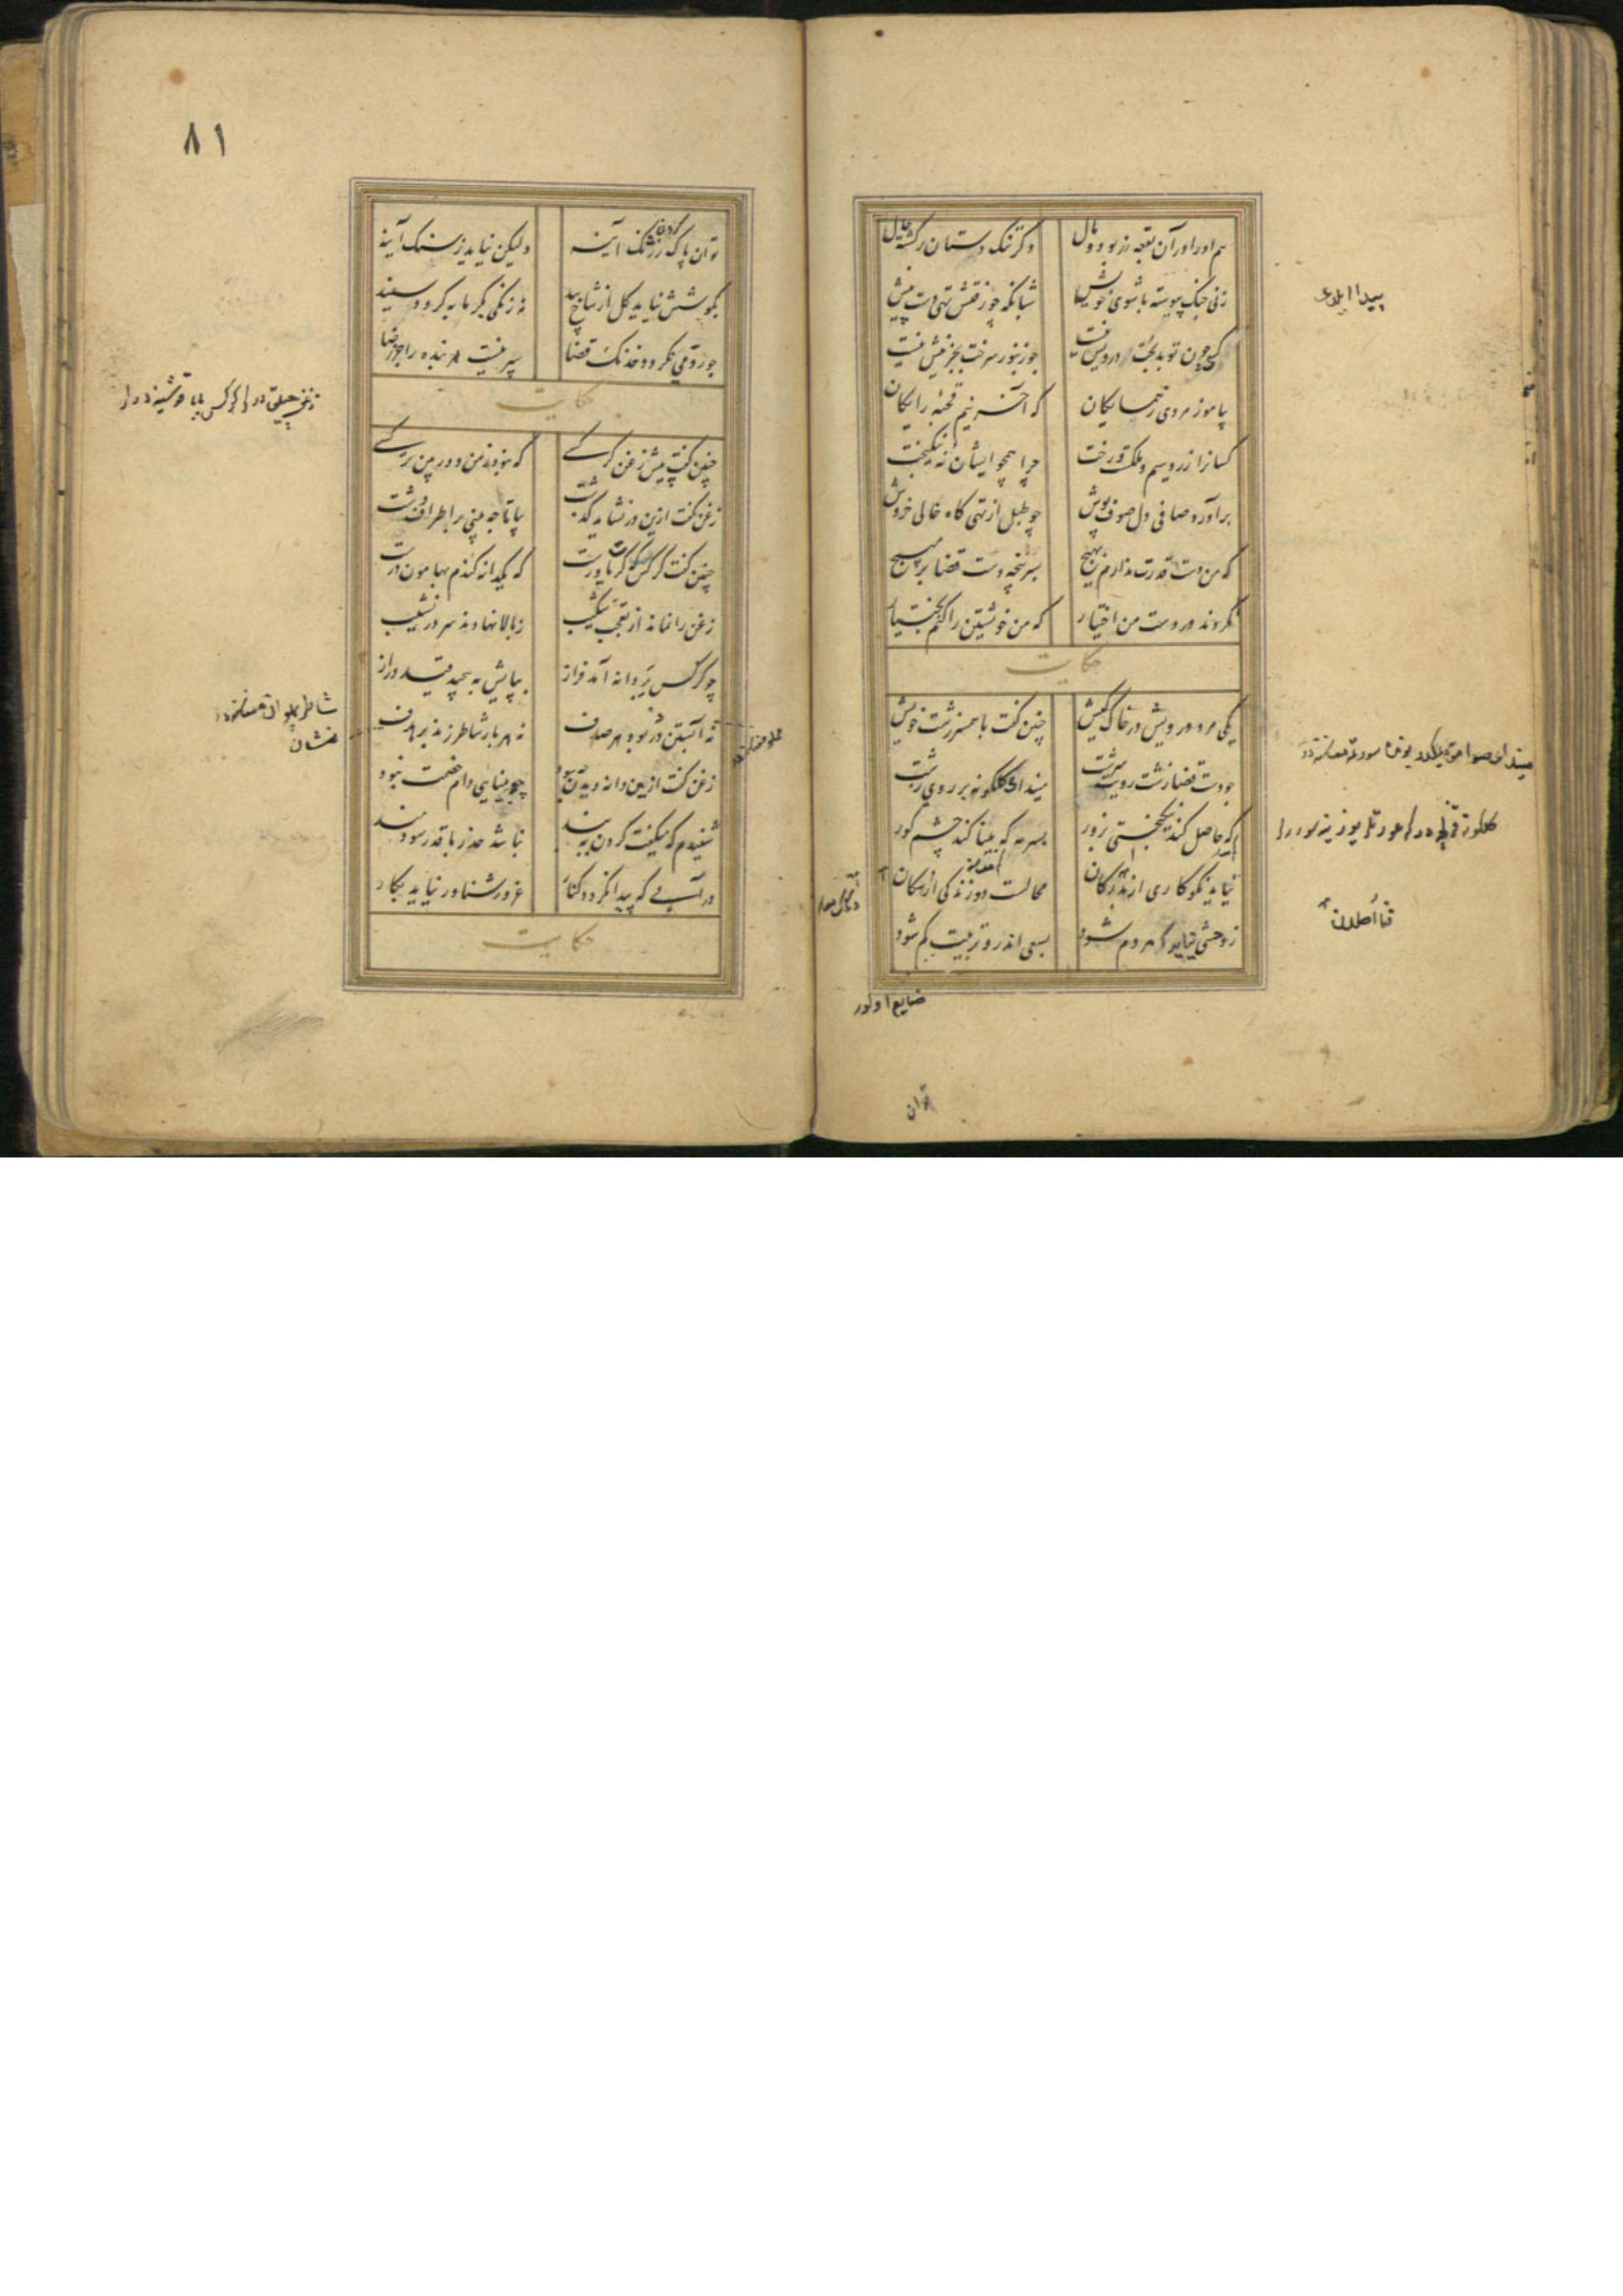 هم اورا در آن بقعه زر بود و مال
دگر تنک دستان برکشته حال
زنی جنک پیوسته با شوی خویش
شبانکه چو رفتش تهی دست پیش
که کس چون تو بدبخت درویش نیست
چو زنبور سرخت بجز نیش نیست
بیاموز مردی ز همسایکان
که آخر نیم قحبهٔ رایکان
کسانرا زر و سیم و ملکست و رخت
چرا همچو ایشان نهٔ نیکبخت
برآورد صافی دل صوف پوش
چو طبل از تهی کاه خالی خروش
که من دست قدرت ندارم بهیچ
بسرپنجه دست قضا بر مپیچ
نکردند در دست من اختیار
که من خویشتن را کنم بختیار
حکایت
یکی مرد درویش در خاک کیش
چنین کفت با همسر زشت خویش
چو دست قضا زشت رویت سرشت
میندای کلکونه بر روی زشت
که حاصل کند نیکبختی بزور
بسرمه که بینا کند چشم کور
نیاید نکوکاری از بدرکان
محالست دوزندکی از سکان
ز وحشی نیاید که مردم شود
بسعی اندرو تربیت کم شود
پیدا ایلدی
ضایع اولور
توان
٨١
توان پاک کردن ز زنک آینه
ولیکن نیاید ز سنک آینه
بکوشش نیاید کل از شاخ بید
نه زنکی بکرمابه کردد سپید
چو رد می نکردد خدنک قضا
سپر نیست مر بنده را جز رضا
حکایت
چنین کفت پیش زغن کرکسی
که نبود ز من دوربین تر کسی
زغن کفت ازین در نشاید کذشت
بیا تا چه بینی بر اطراف دشت
چنین کفت کرکس کرت باورست
که یکدانه کندم بهامون درست
زغن را نماند از تعجب شکیب
ز بالا نهادند سر در نشیب
چو کرکس بر دانه آمد فراز
بپایش بپیچید قید دراز
نه آبستن در بود هر صدف
نه هر بار شاطر زند بر هدف
زغن کفت ازین دانه دیدن چه سود
چو بینایی دام خصمت نبود
شنیدم که میکفت کردن ببند
نباشد حذر با قدر سودمند
در آبی که پیدا نکردد کنار
غرور شناور نیاید بکار
حکایت
نشان